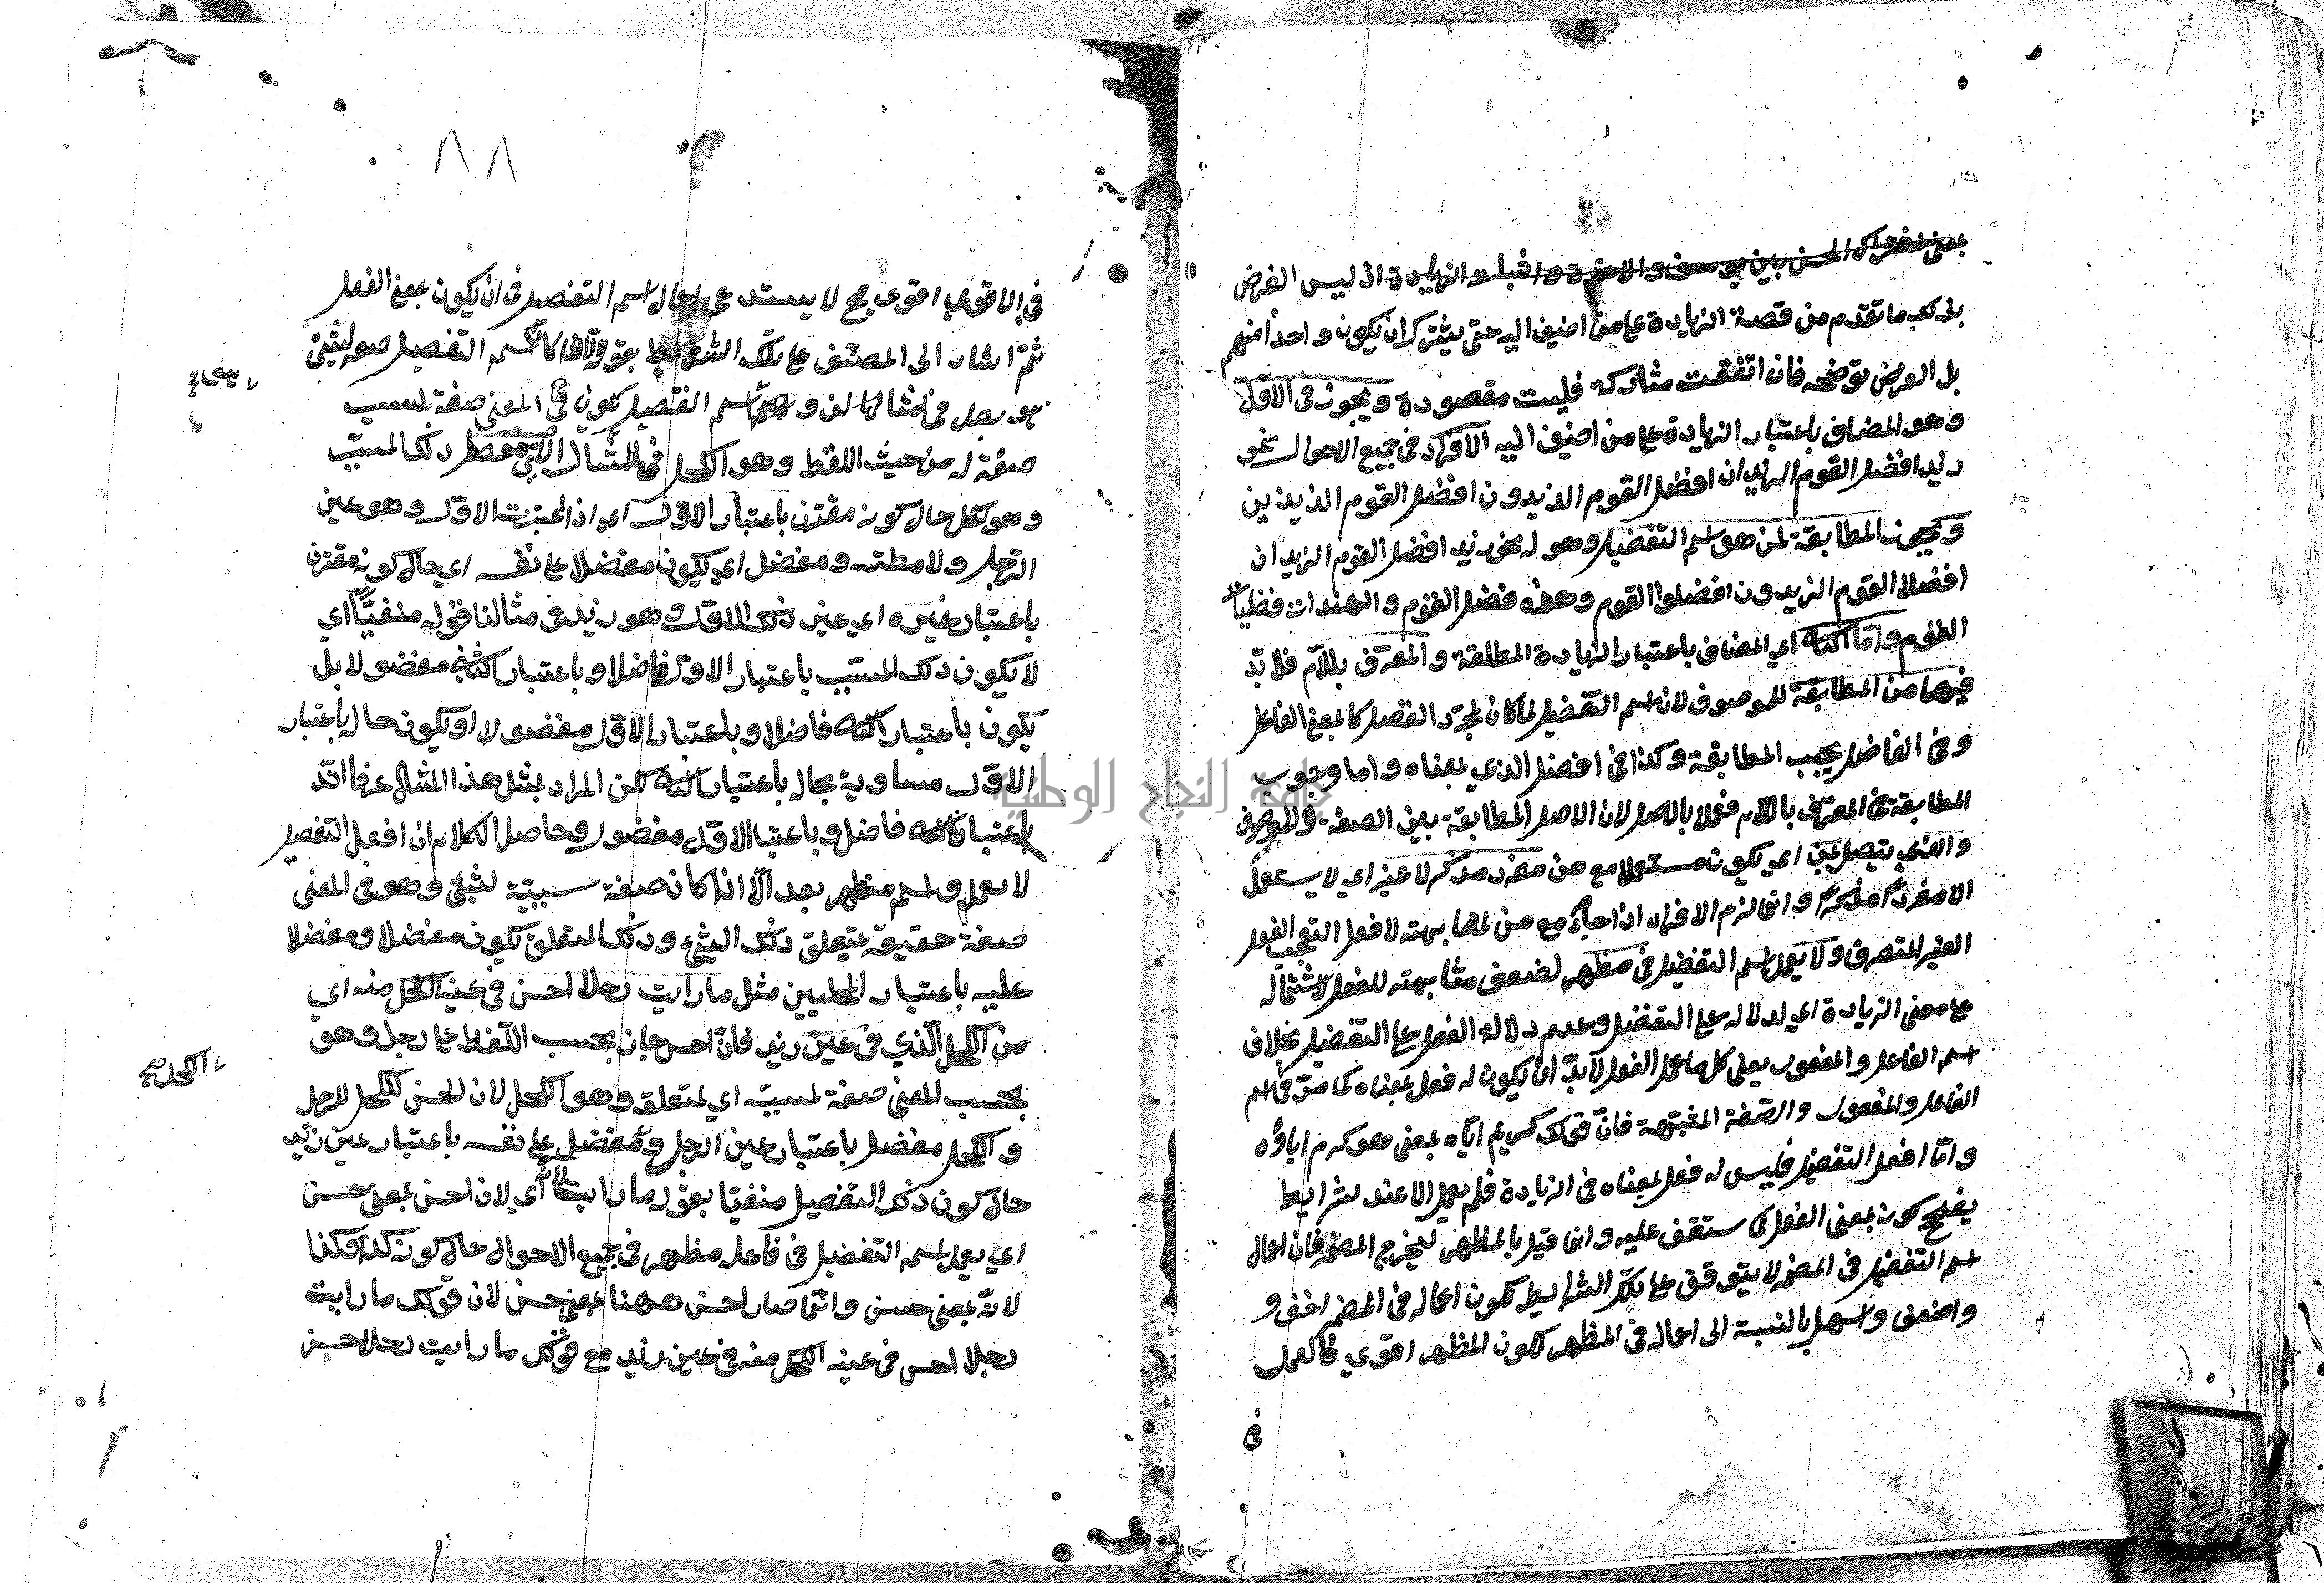 بمعنى اشتراك الحسن بين يوسف والاخوة واثبات الزيادة اذ ليس الغرض
بذلك ما تقدم من قصة الزيادة على من اضيف اليه حتى يشترك ان يكون واحدا منهم
بل الغرض توضيحه فان اتفقت مشاركة فليست مقصودة ويجوز فى الاول
وهو المضاف باعتبار الزيادة على من اضيف اليه الافراد فى جميع الاحوال نحو
زيد افضل القوم الزيدان افضل القوم الزيدون افضل القوم
ويجوز المطابقة لمن هو اسم التفضيل وهو له نحو زيد افضل القوم الزيدان
افضلا القوم الزيدون افضلوا القوم وهذه فضلى القوم والهندات فضليات
القوم واما الثانى اى المضاف باعتبار الزيادة المطلقة والمعرّف باللام فلا بدّ
فيهما من المطابقة للموصوف لان اسم التفضيل لما كان لمجرّد الفضل كان بمعنى الفاعل
وفى الفاضل يجب المطابقة وكذا فى افضل الذي بمعناه واما وجوب
المطابقة فى المعرّف باللام فعملا بالاصل لان الاصل المطابقة بين الصفة والموصوف
والذي يتصل بمن اى يكون مستعملا مع من مفرد مذكر لا غير اى لا يستعمل
الا مفردًا مذكرًا وانما لزم الافراد اذا جاء مع من لمشابهته لافعل التعجب الفعل
الغير المتصرف ولا يعمل اسم التفضيل فى مظهر لضعف مشابهته للفعل لاشتماله
على معنى الزيادة اى لدلالته على التفضيل وعدم دلالة الفعل على التفضيل بخلاف
اسم الفاعل والمفعول يعنى كل ما عمل الفعل لا بدّ ان يكون له فعل بمعناه كما مرّ فى اسم
الفاعل والمفعول والصفة المشبهة فانّ قولك كريم اباه بمعنى هو كرم اباؤه
وامّا افعل التفضيل فليس له فعل بمعناه فى الزيادة فلم يعمل الا عند شرايط
يفتح كونه بمعنى الفعل كما ستقف عليه وانما قيل بالمظهر ليخرج المضمر فان اعمال
اسم التفضيل فى المضمر لا يتوقف على تلك الشرايط لكون اعماله فى المضمر اخفى و
واضعف واسهل بالنسبة الى اعماله فى المظهر لكون المظهر اقوى فالعمل
فى
٨٨
فى الاقوى اقوى لا يستدعى اعمال اسم التفضيل فى ان يكون بمعنى الفعل
ثمّ اشار الى المصنف على تلك الشرايط بقوله الا اذا كان اسم التفضيل صفة لشيئ
هو رجل فى مثالنا وهو اسم التفضيل يكون فى المعنى صفة لمسبب
صفة له من حيث اللفظ وهو الكحل فى المثال ذلك المسبّب
وهو كحل حال كونه مقترن باعتبار الاول اى اذا اعتبرت الاول وهو عين
الرجل ومفضل اى يكون مفضلا على نفسه اى حال كونه مقترن
باعتبار غيره اى غير ذلك الاول وهو زيد فى مثالنا قوله منفيًّا اى
لا يكون ذلك المسبّب باعتبار الاول فاضلا وباعتبار الثانى مفضولا بل
يكون باعتبار الثانى فاضلا وباعتبار الاول مفضولا او يكون حاله باعتبار
الاول مساوية بحاله باعتبار الثانى لكن المراد بمثل هذا المثال عرفا انه
باعتبار الثانى فاضل وباعتبار الاول مفضول وحاصل الكلام ان افعل التفضيل
لا يعمل فى اسم مظهر بعد الّا اذا كان صفة سببيّة لشيئ وهو فى المعنى
صفة حقيقة متعلق ذلك الشيئ وذلك المتعلق يكون مفضلا ومفضلا
عليه باعتبار المحلين مثل ما رايت رجلا احسن فى عينه الكحل منه اى
من الكحل الّذي فى عين زيد فانّ احسن جار بحسب اللفظ على رجل وهو
بحسب المعنى صفة لمسببه اى لمتعلقه وهو الكحل لان الحسن للكحل للرجل
والكحل مفضل باعتبار عين الرجل ومفضل على نفسه باعتبار عين زيد
حال كون ذلك التفضيل منفيّا بقوله ما رايت اى لان احسن بمعنى حسن
اى يعمل اسم التفضيل فى فاعله مظهر فى جميع الاحوال حال كونه كذا وكذا
لانّه بمعنى حسن وانّما صار احسن ههنا بمعنى حسن لان قولك ما رايت
رجلا احسن فى عينه الكحل منه فى عين زيد مع قولك ما رايت رجلا احسن
الكحل صح
جامعة النجاح الوطنية